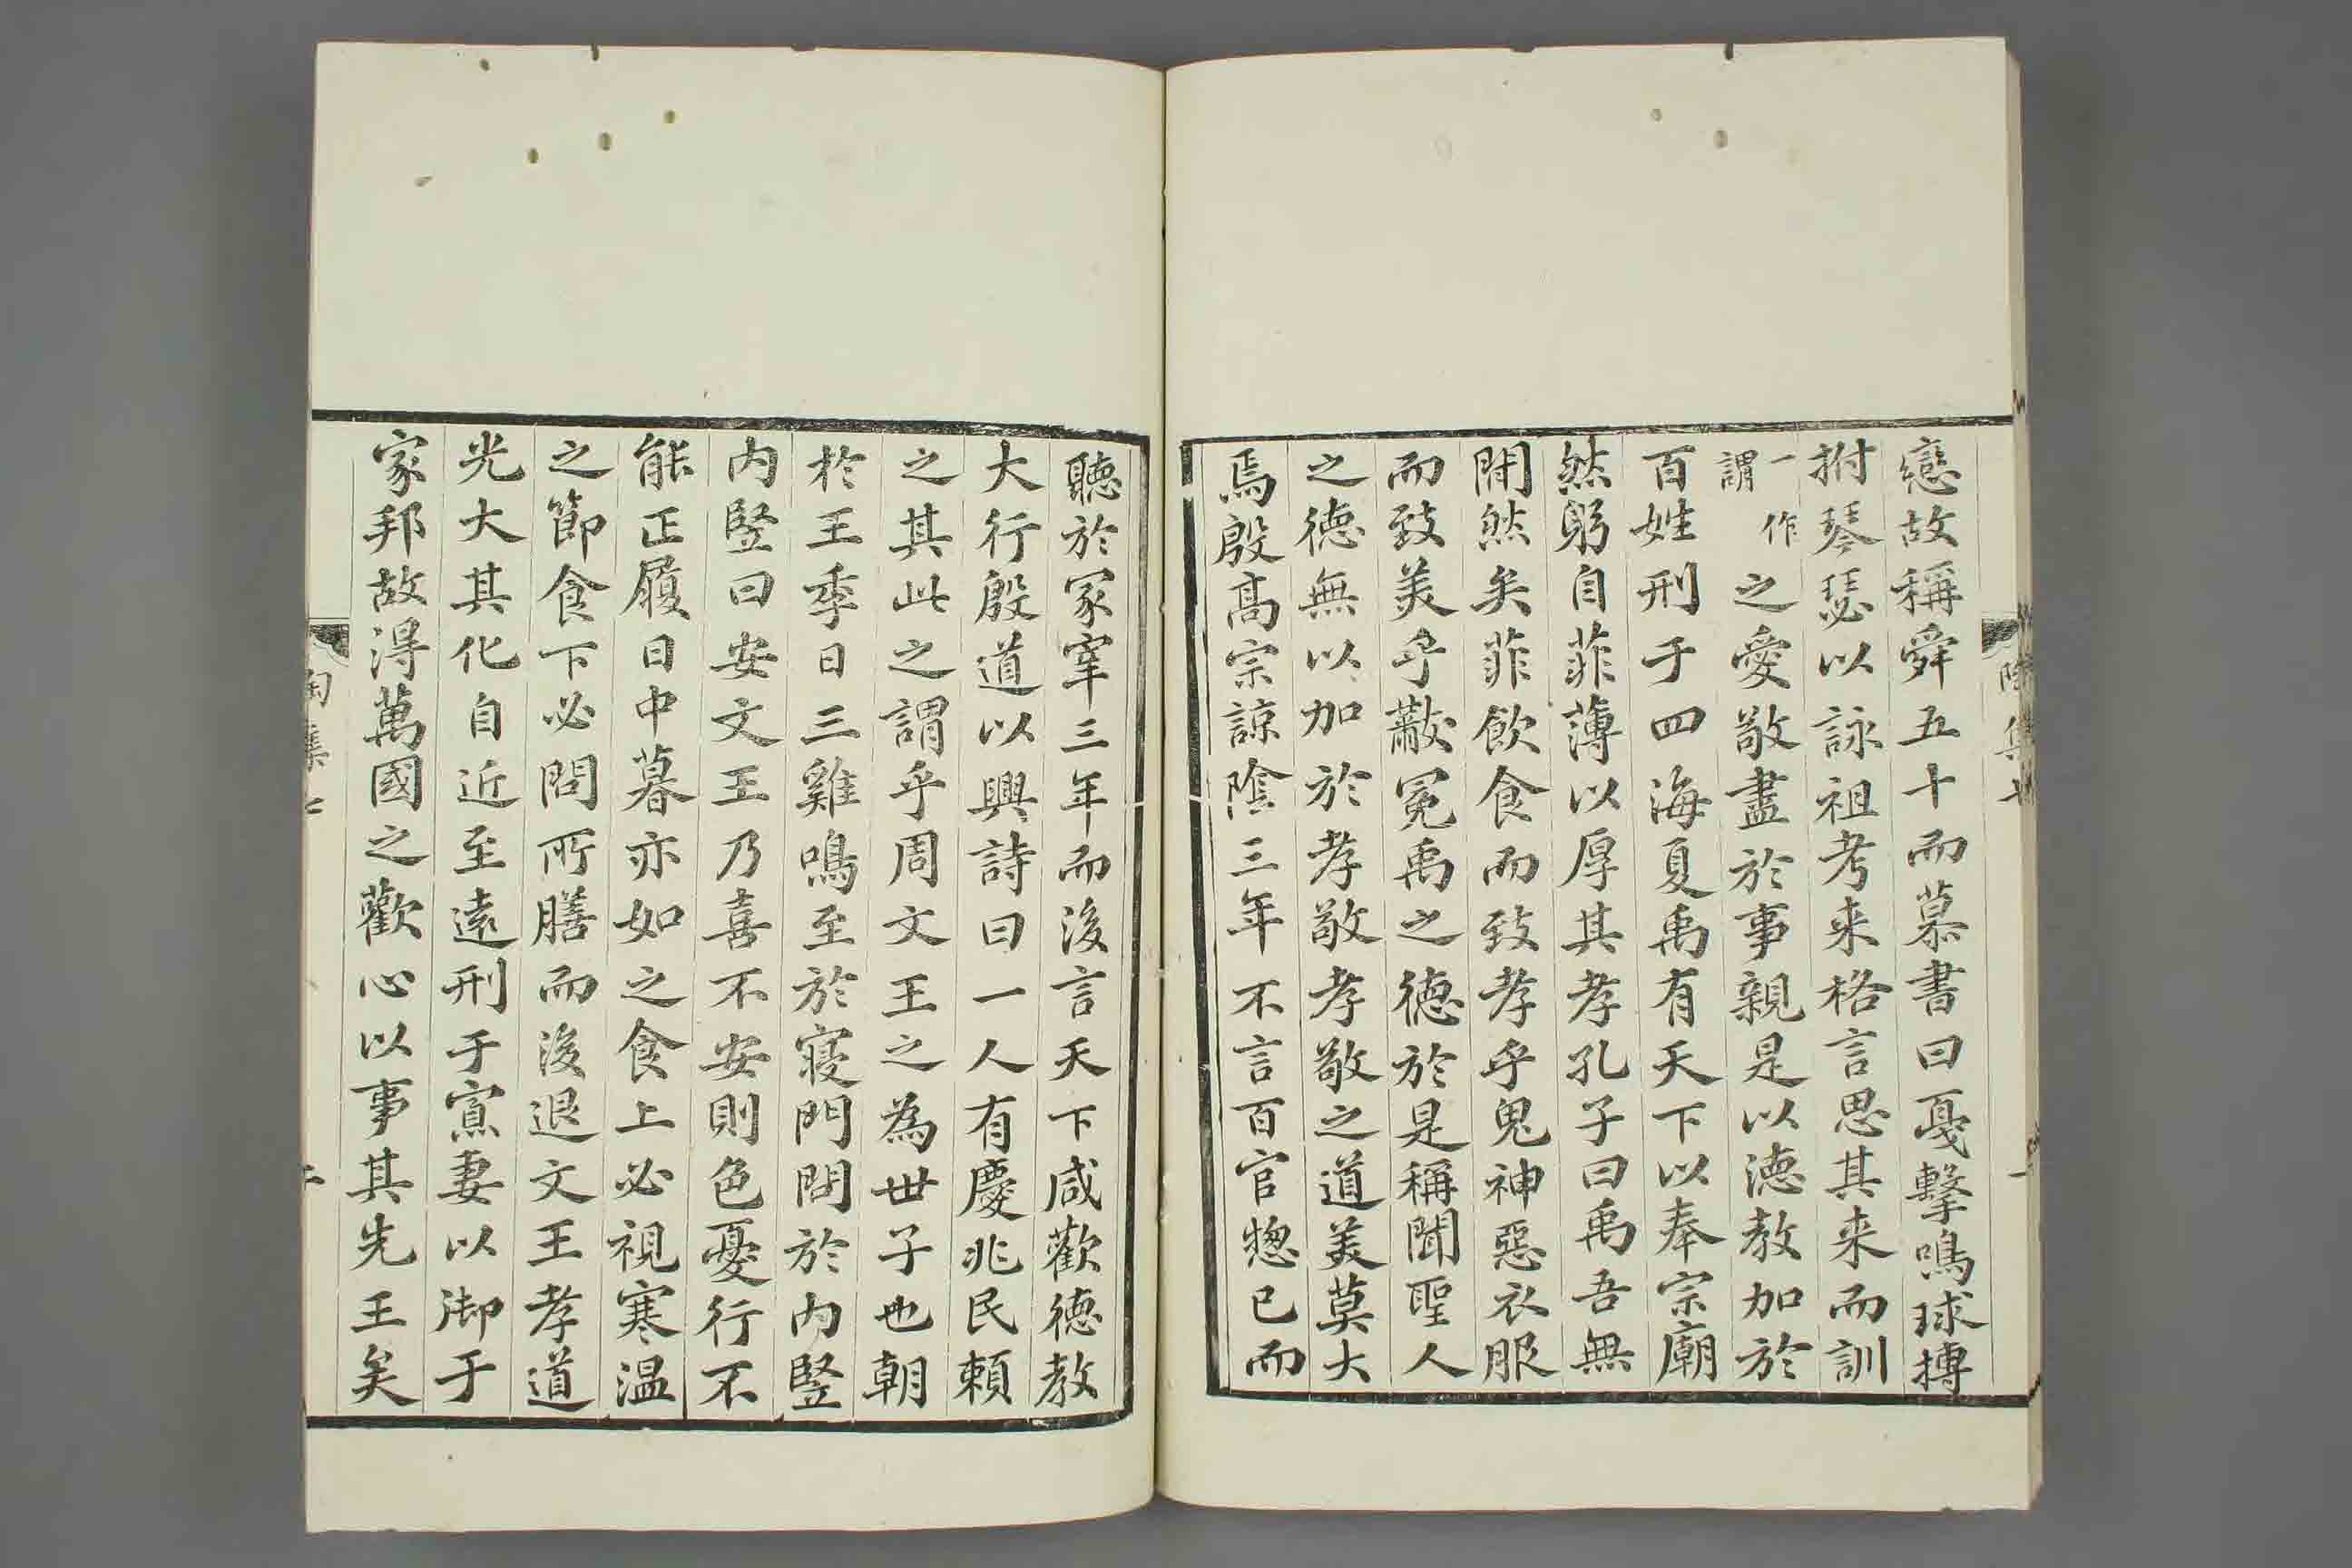 戀故稱舜五十而慕書曰戞擊鳴球搏
拊琴瑟以詠祖考来格言思其来而訓
一作謂之愛敬盡於事親是以德教加於
百姓刑于四海夏禹有天下以奉宗廟
然躬自菲薄以厚其孝孔子曰禹吾無
閒然矣菲飲食而致孝乎鬼神惡衣服
而致美乎黻冕禹之德於是稱聞聖人
之德無以加於孝敬孝敬之道美莫大
焉殷髙宗諒隂三年不言百官惣已而
聽於冢宰三年而後言天下咸歡德教
大行殷道以興詩曰一人有慶兆民頼
之其此之謂乎周文王之為世子也朝
於王季日三雞鳴至於寝門問於内豎
内豎曰安文王乃喜不安則色憂行不
能正履日中暮亦如之食上必視寒温
之節食下必問所膳而後退文王孝道
光大其化自近至遠刑于寡妻以御于
家邦故得萬國之歡心以事其先王矣